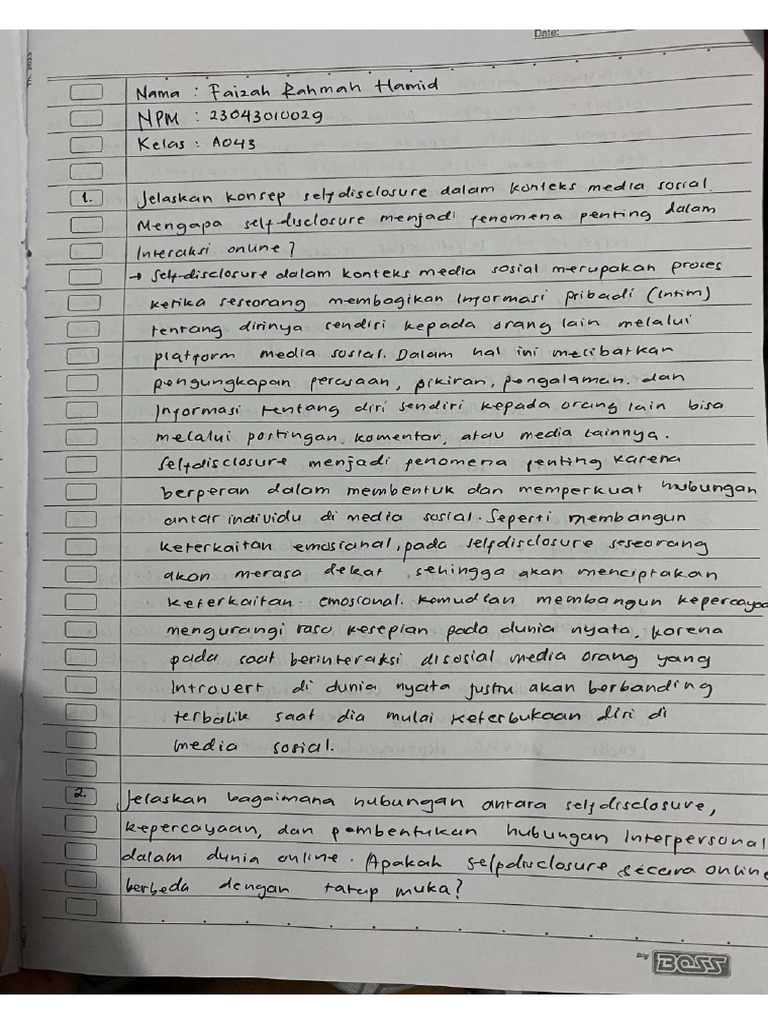 Date:
Nama : Faizah Rahmah Hamid
NPM : 23043010029
Kelas : A043
1. Jelaskan konsep selfdisclosure dalam konteks media sosial.
Mengapa self-disclosure menjadi fenomena penting dalam
Interaksi online?
→ Self-disclosure dalam konteks media sosial merupakan proses
ketika seseorang membagikan Informasi pribadi (Intim)
tentang dirinya sendiri kepada orang lain melalui
platform media sosial. Dalam hal ini melibatkan
pengungkapan perasaan, pikiran, pengalaman. dan
Informasi tentang diri sendiri kepada orang lain bisa
melalui postingan, komentar, atau media lainnya.
Selfdisclosure menjadi fenomena penting karena
berperan dalam membentuk dan memperkuat hubungan
antar individu di media sosial. Seperti membangun
keterkaitan emosional, pada selfdisclosure seseorang
akan merasa dekat sehingga akan menciptakan
keterkaitan emosional. Kemudian membangun kepercayaa
mengurangi rasa kesepian pada dunia nyata, karena
pada saat berinteraksi disosial media orang yang
Introvert di dunia nyata justru akan berbanding
terbalik saat dia mulai keterbukaan diri di
media sosial.
2. Jelaskan bagaimana hubungan antara selfdisclosure,
kepercayaan, dan pembentukan hubungan Interpersonal
dalam dunia online. Apakah selfdisclosure secara online
berbeda dengan tatap muka?
Big BOSS